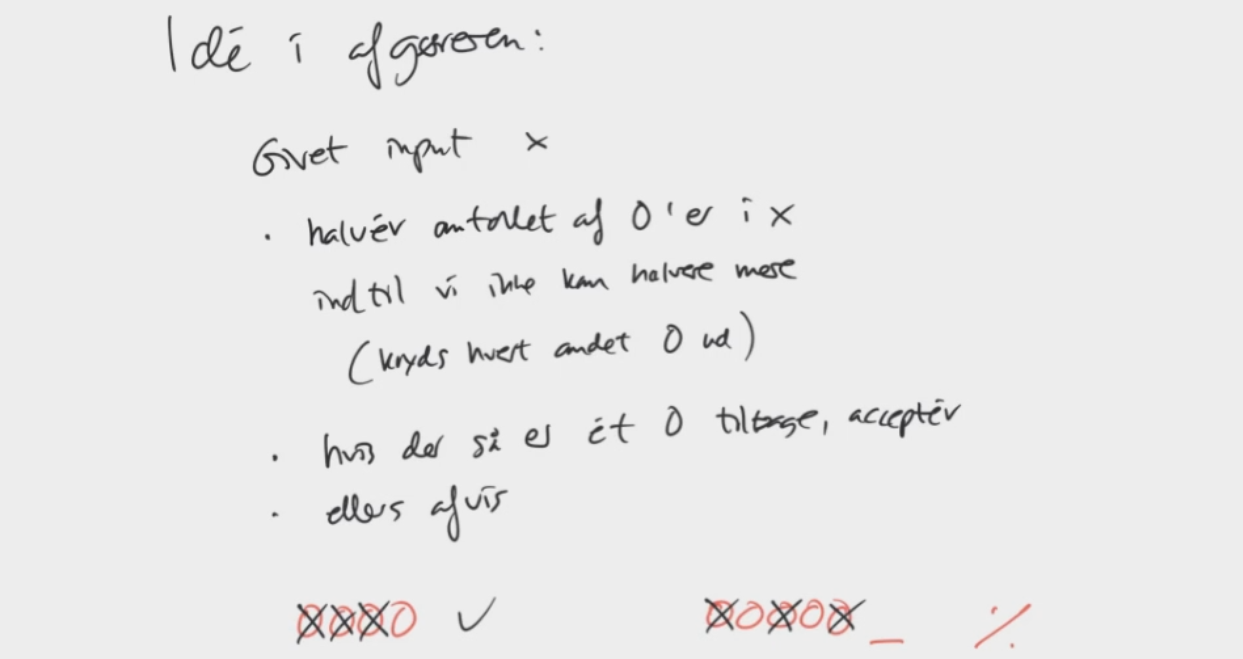 Idé i afgøreren:
Givet input x
· halvér antallet af 0'er i x
indtil vi ikke kan halvere mere
(kryds hvert andet 0 ud)
· hvis der så er ét 0 tilbage, acceptér
· ellers afvis
0000 ✓ 00000_ ⁒